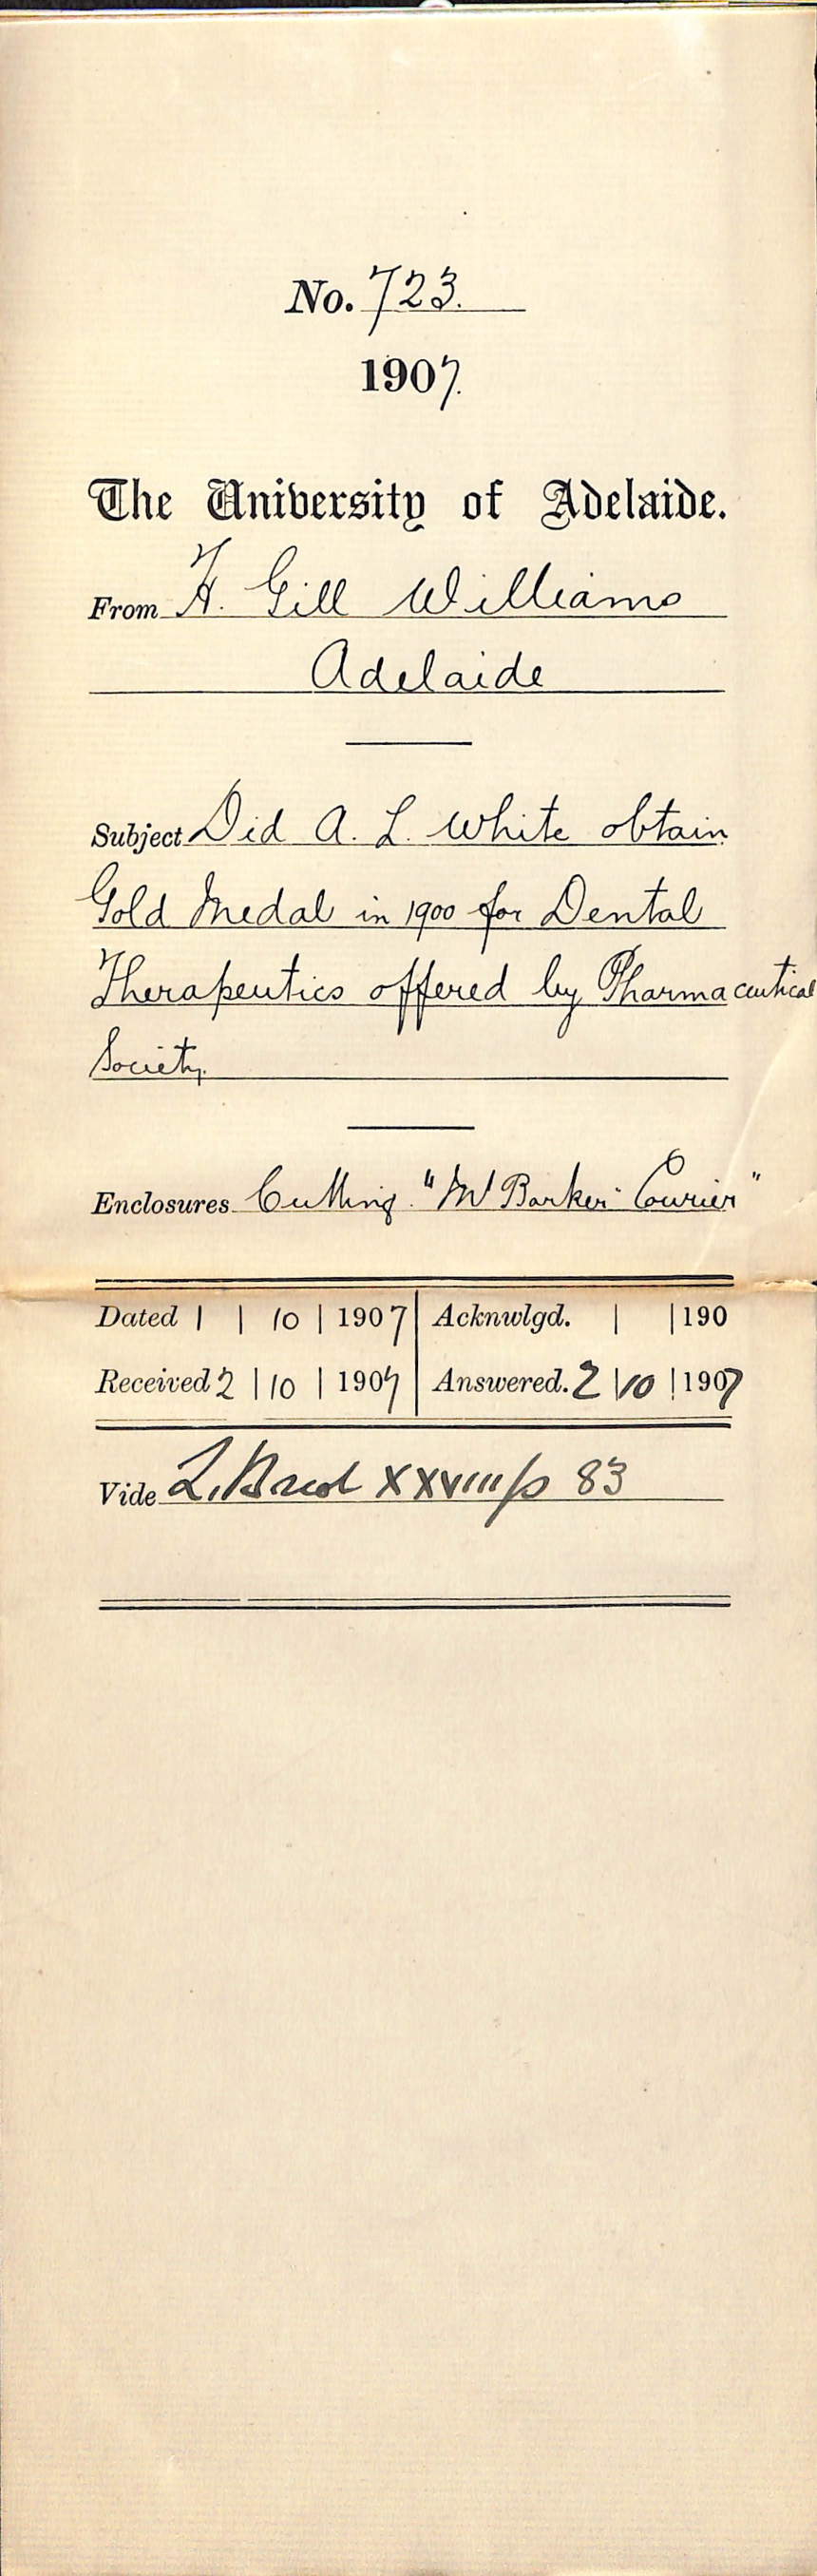 No. 723.
1907.
The University of Adelaide.
From H. Gill Williams
Adelaide
Subject Did A. L. White obtain
Gold Medal in 1900 for Dental
Therapeutics offered by Pharmaceutical
Society.
Enclosures Cutting. "Mt Barker Courier"
Dated 1 | | 10 | 1907 | Acknwlgd. | | 190
Received 2 | 10 | 1907 | Answered. 2 | 10 | 1907
Vide XXVIII/p 83